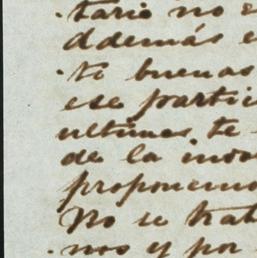 tario no e
ddemás e
te buenas
ese partic
ultimas te
de la indo
proponemo
No se trat
nos y por